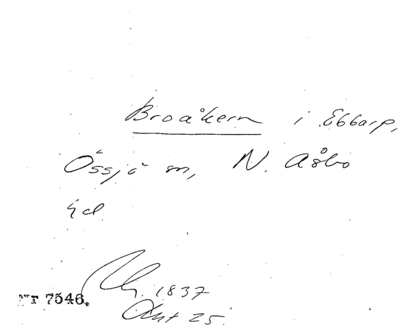 Broåkern i Ebbarp,
Össjö sn, N. Åsbo
hd
Nr 7546. 1837
Akt 25.